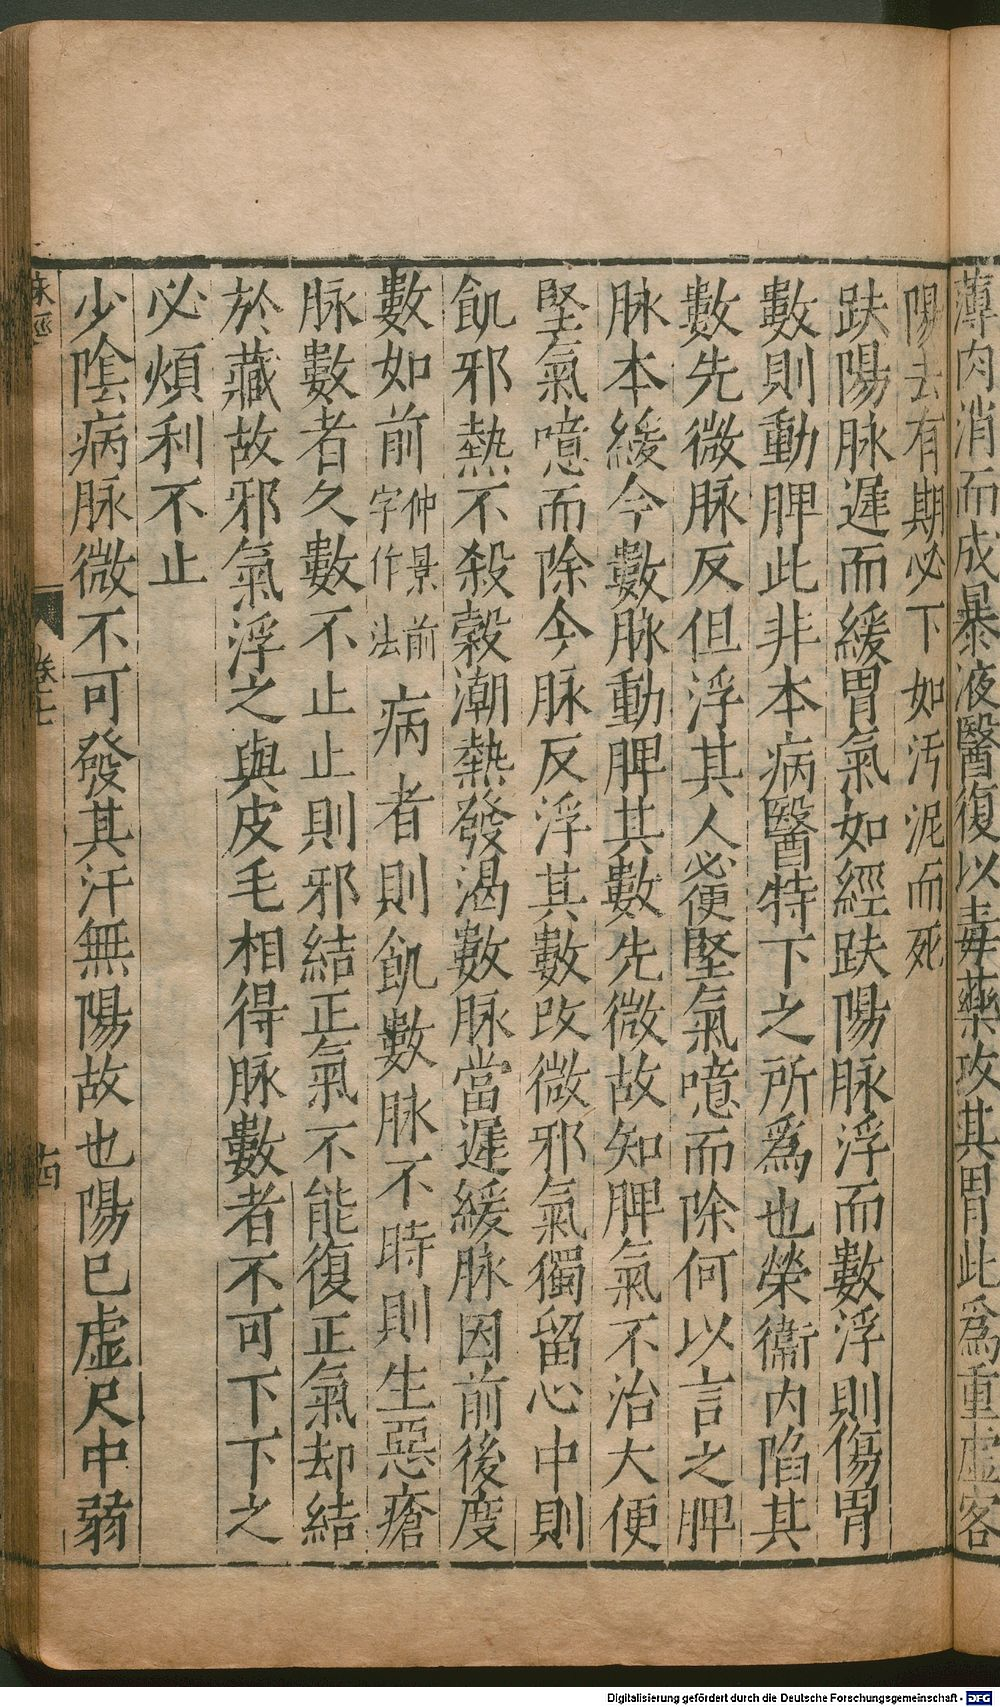 薄肉消而成暴液醫復以毒藥攻其胃此爲重虛客
陽去有期必下如汚泥而死
趺陽脉遲而緩胃氣如經趺陽脉浮而數浮則傷胃
數則動脾此非本病醫特下之所爲也榮衞內陷其
數先微脉反但浮其人必便堅氣噫而除何以言之脾
脉本緩今數脉動脾其數先微故知脾氣不治大便
堅氣噫而除今脉反浮其數改微邪氣獨留心中則
飢邪熱不殺穀潮熱發渴數脉當遲緩脉因前後度
數如前仲景前字作法病者則飢數脉不時則生惡瘡
脉數者久數不止止則邪結正氣不能復正氣却結
於藏故邪氣浮之與皮毛相得脉數者不可下下之
必煩利不止
少陰病脉微不可發其汗無陽故也陽已虛尺中弱
脉經
卷七
十四
Digitalisierung gefördert durch die Deutsche Forschungsgemeinschaft - DFG